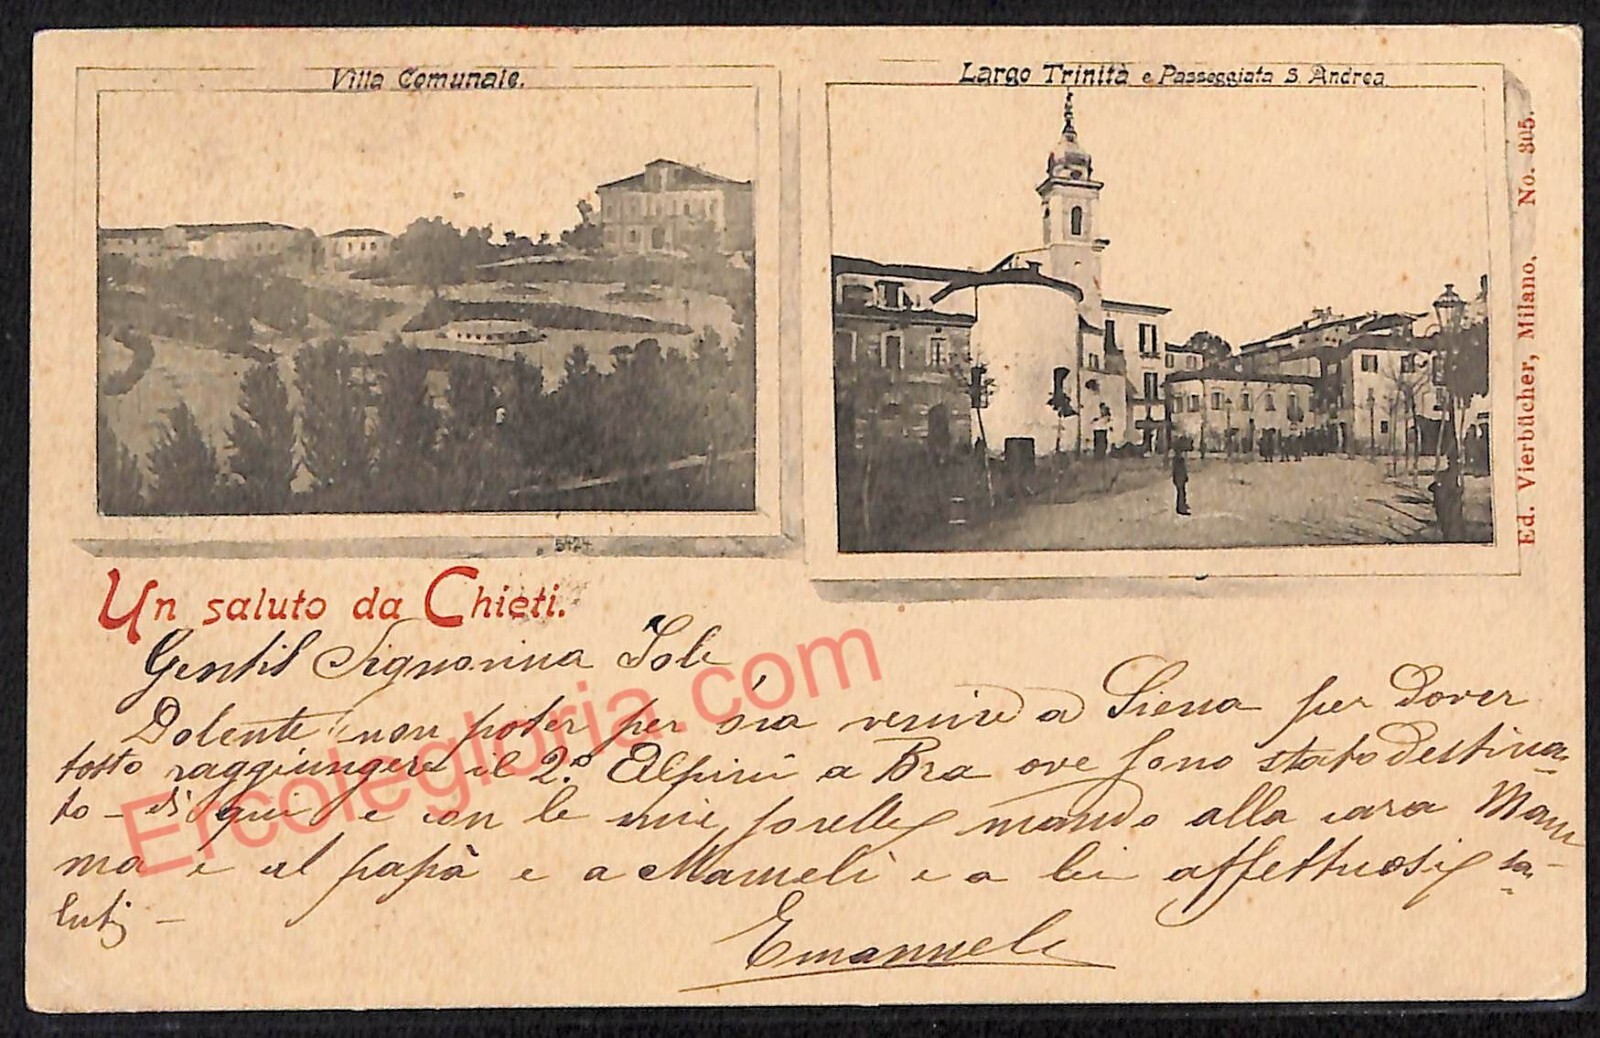 Villa Comunale.
Largo Trinità e Passeggiata S. Andrea.
Ed. Vierbücher, Milano, No. 305.
5424
Un saluto da Chieti.
Gentil Signorina Iole
Dolente non poter per ora venire a Siena per Dover
tosto raggiungere il 2º Alpini a Bra ove sono stato destina-
to - di qui e con le mie sorelle mando alla cara Mam
ma e al papà e a Mameli e a lei affettuosi sa-
luti -
Emanuele
Ercolegloria.com